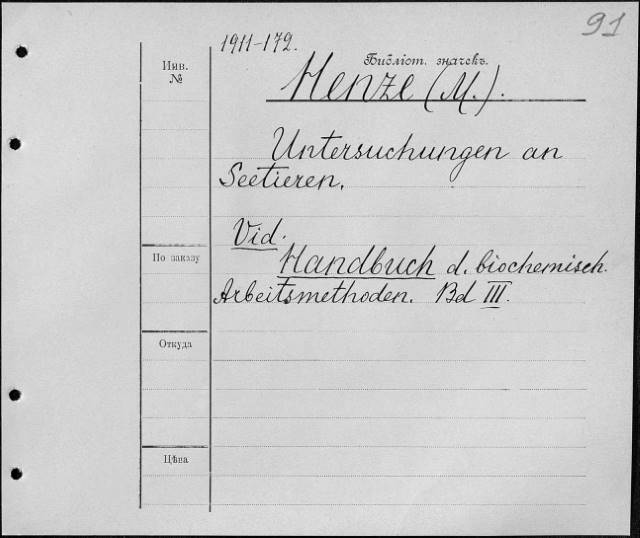 91
1911-172.
Инв.
№
Библіот. значекъ.
Henze (M.).
Untersuchungen an
Seetieren.
Vid.
По заказу
Handbuch d. biochemisch.
Arbeitsmethoden. Bd III.
Откуда
Цѣна